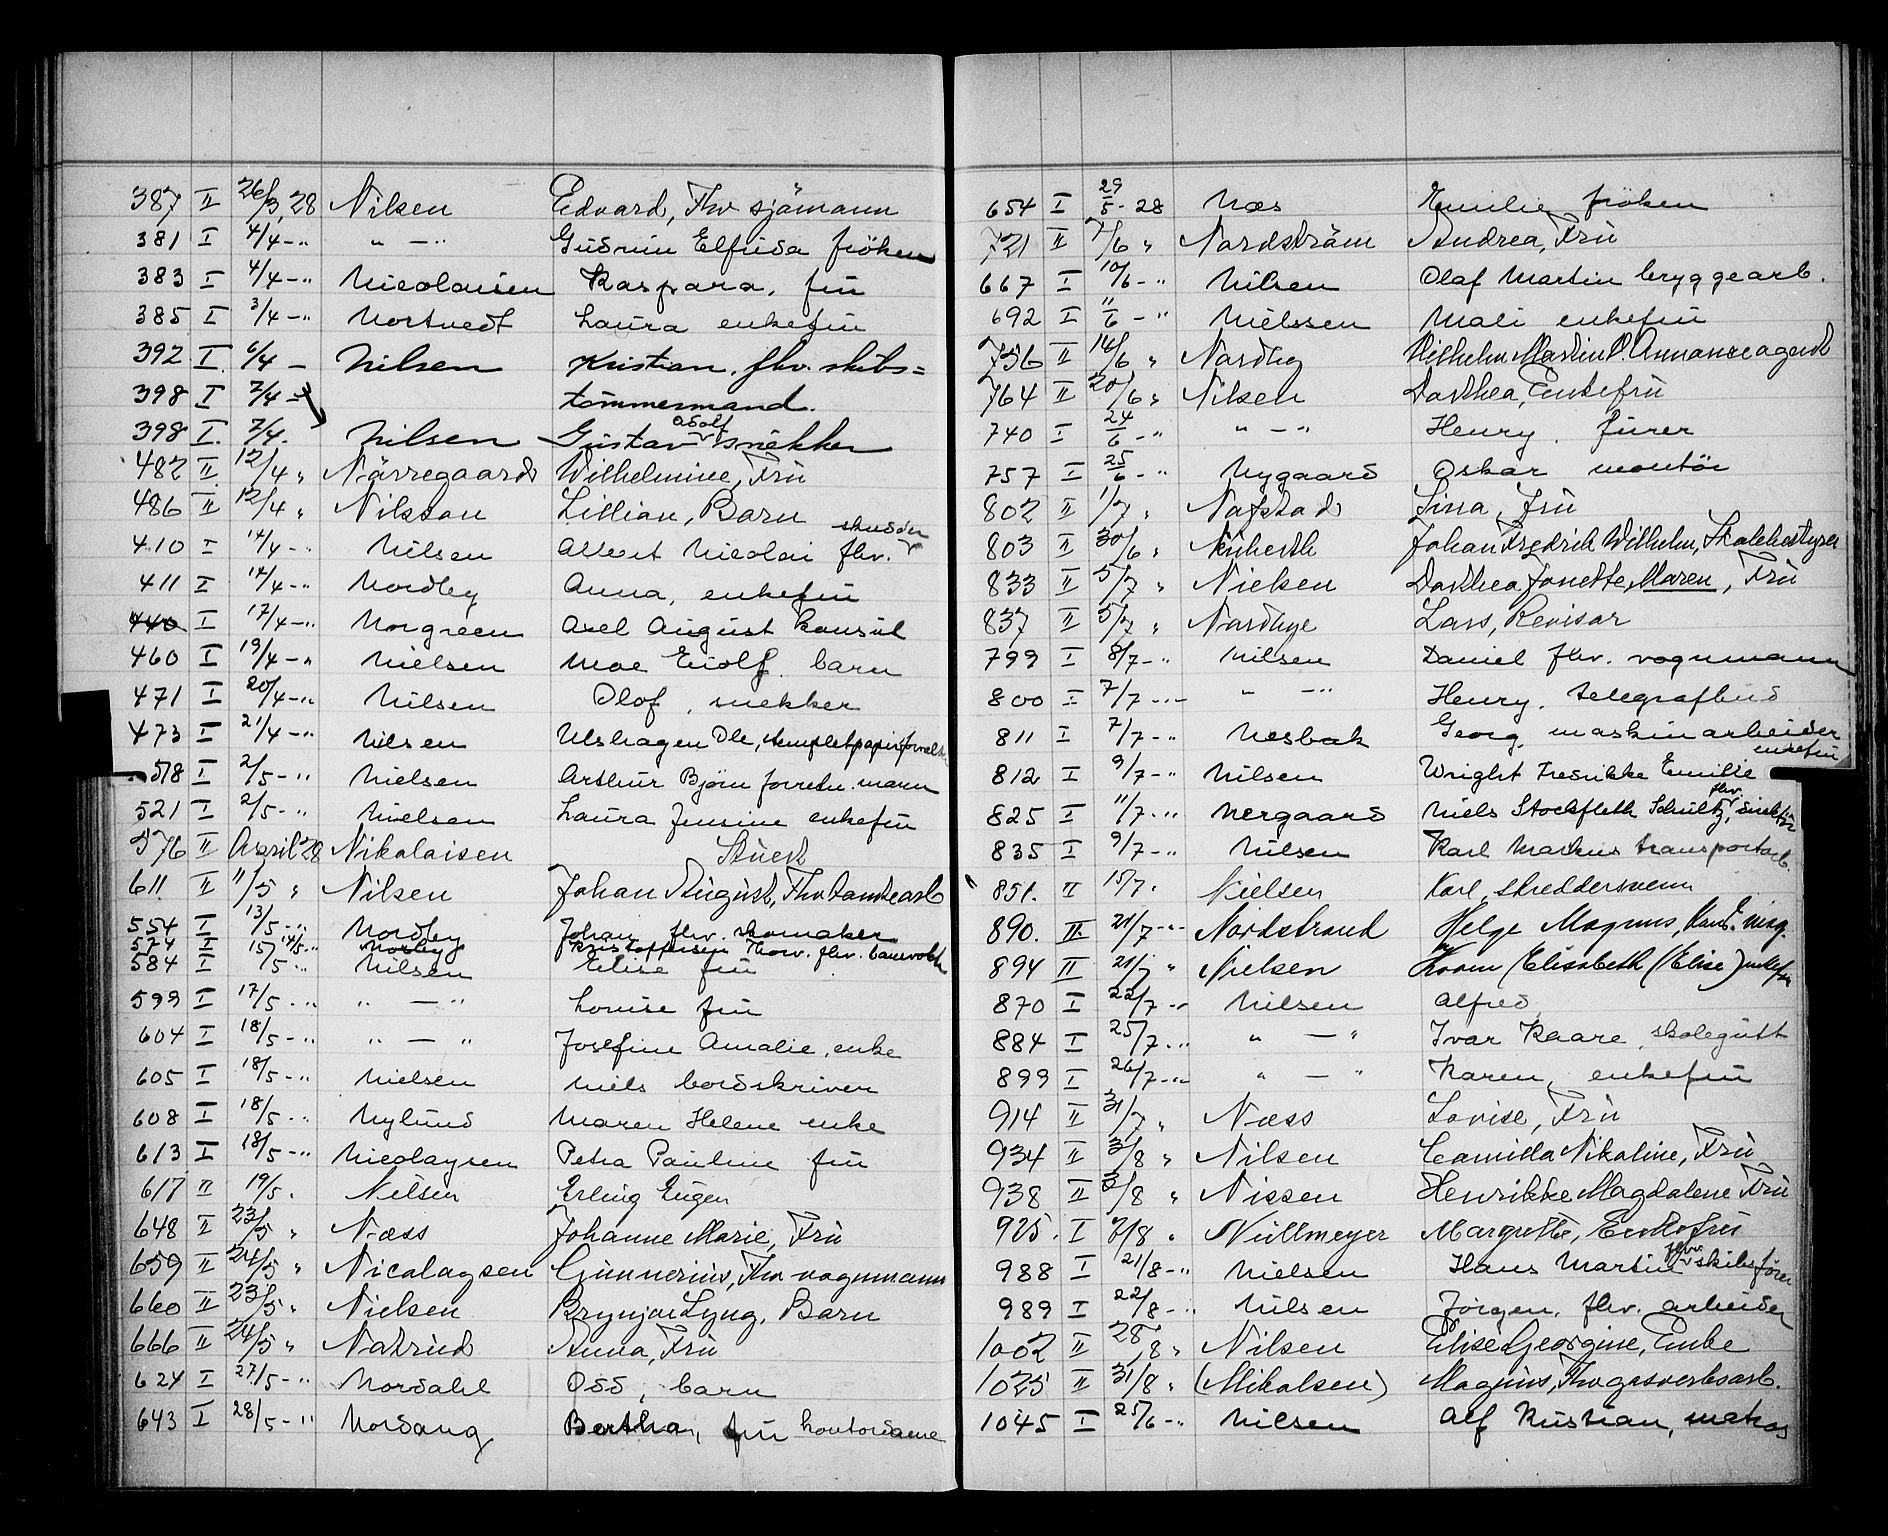 387 II 26/3, 28 Nilsen Edvard, Fhv sjömann
381 I 4/4 - " " - " Gudrun Elfrida fröken
383 I 4/4 - " Nicolaisen Kaspara, fru
385 I 3/4 - " Nortvedt Laura enkefru
392 I 6/4 - Nilsen Kristian, fhv. skibs=
398 I 7/4 - tömmermand.
adolf
398 I. 7/4. Nilsen Gustav snekker
482 II 12/4 " Nörregaard Wilhelmine, Fru
486 II 12/4 " Nilsson Lillian, Barn
skredder
410 I 14/4 - " Nilsen Albert Nicolai fhv.
411 I 14/4 - " Nordby Anna, enkefru
440 I 17/4 - " Norgreen Axel August konsul
460 I 19/4 - " Nielsen Moe Eiolf. barn
471 I 20/4 - " Nilsen Olof, snekker
473 I 21/4 - " Nilsen Ulshagen Ole,
518 I 2/5 - " Nielsen Arthur Björn forretn. mann
521 I 2/5 - " Nielsen Laura Jensine enkefru
576 II April 28 Nikolaisen
611 II 11/5 " Nilsen Johan August, Fhv
554 I 13/5 - " Nordby Johan fhv. skomaker
574 I 14/5 - " Nordby Kristoffersen Thorv. fhv. banevokt
584 I 15/5 - " Nilsen Elise fru
599 I 17/5 - " " - " Lovise fru
604 I 18/5 - " " - " Josefine Amalie, enke
605 I 18/5 - " Nielsen Niels bordskriver
608 I 18/5 - " Nylund Maren Helene enke
613 I 18/5 - " Nicolaysen Petra Pauline fru
617 II 19/5. Nielsen Erling Eugen
648 II 23/5 " Næss Johanne Marie, Fru
659 II 24/5 " Nicolaysen Gunnerius, Fhv vognmann
660 II 23/5 " Nielsen Brynjar Lyng, Barn
666 II 24/5 " Natrud Anna, Fru
624 I 27/5 - " Nordahl Odd, barn
643 I 28/5 - " Nordang Bertha, fru kontordame
654 I 29/5 - 28 Næs Emilie fröken
721 II 7/6 " Nordström Andrea, Fru
667 I 10/6 - " Nilsen Olaf Martin bryggearb.
692 I 11/6 - " Nielssen Mali enkefru
736 II 14/6 " Nordby Wilhelm Martin P. Annonceagent
764 II 20/6 " Nilsen Dorthea, Enkefru
740 I 24/6 - " " - " Henry. furer
757 I 25/6 - " Nygaard Oskar montör
802 II 1/7 " Nafstad Lina, Fru
803 II 30/6 " Johan Fredrik Wilhelm, Skolebestyrer
833 II 5/7 " Nielsen Dorthea Jonette, Maren, Fru
837 II 5/7 " Nordbye Lars, Revisor
799 I 8/7 - " Nilsen Daniel fhv. vognmann
800 I 7/7 - " " - " Henry. telegrafbud
811 I 7/7 - " Nesbak Georg, maskinarbeider
enkefru
812 I 9/7 - " Nilsen Wright Fredrikke Emilie
fhv.
825 I 11/7 - " Nergaard Niels Stockfleth Schultz, direktör
835 I 9/7 - " Nilsen Karl Markus transportarb.
851. II 15/7. Nielsen Karl, skreddersvenn
890. II 21/7 - " Nordstrand Helge Magnus,
894 II 21/7 " Nielsen (Elisabeth (Elise) enkefru
870 I 22/7 - " Nilsen Alfred
884 I 25/7 - " " - " Ivar Kaare, skolegutt
899 I 26/7 - " " - " Karen, enkefru
914 II 31/7 " Næss Lovise, Fru
934 II 3/8 " Nilsen Camilla Nikoline, Fru
938 II 3/8 " Nissen Henrikke Magdalene Fru
925. I 7/8 " Nullmeyer Margrethe, Enkefru
fhv.
988 I 21/8 - " Nielsen Hans Martin skibsförer
989 I 22/8 - " Nilsen Jörgen, fhv. arbeider
1002 II 28/8 " Nilsen Elise Georgine, Enke
1025 II 31/8 " (Mikalsen) Magnus, Fhv gasverksarb.
1045 I 25/6 - " Nilsen Alf Kristian, matros